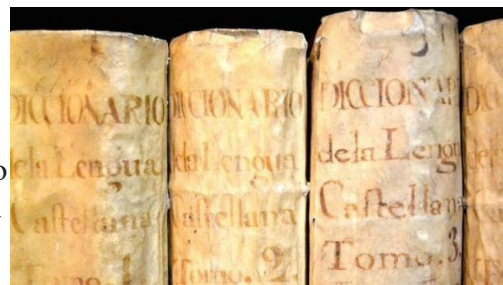 DICCIONARIO
de la Lengua
Castellana
Tomo. 1.
DICCIONARIO
de la Lengua
Castellana
Tomo. 2.
DICCIONAR
de la Lengu
Castellana
Tomo. 3.